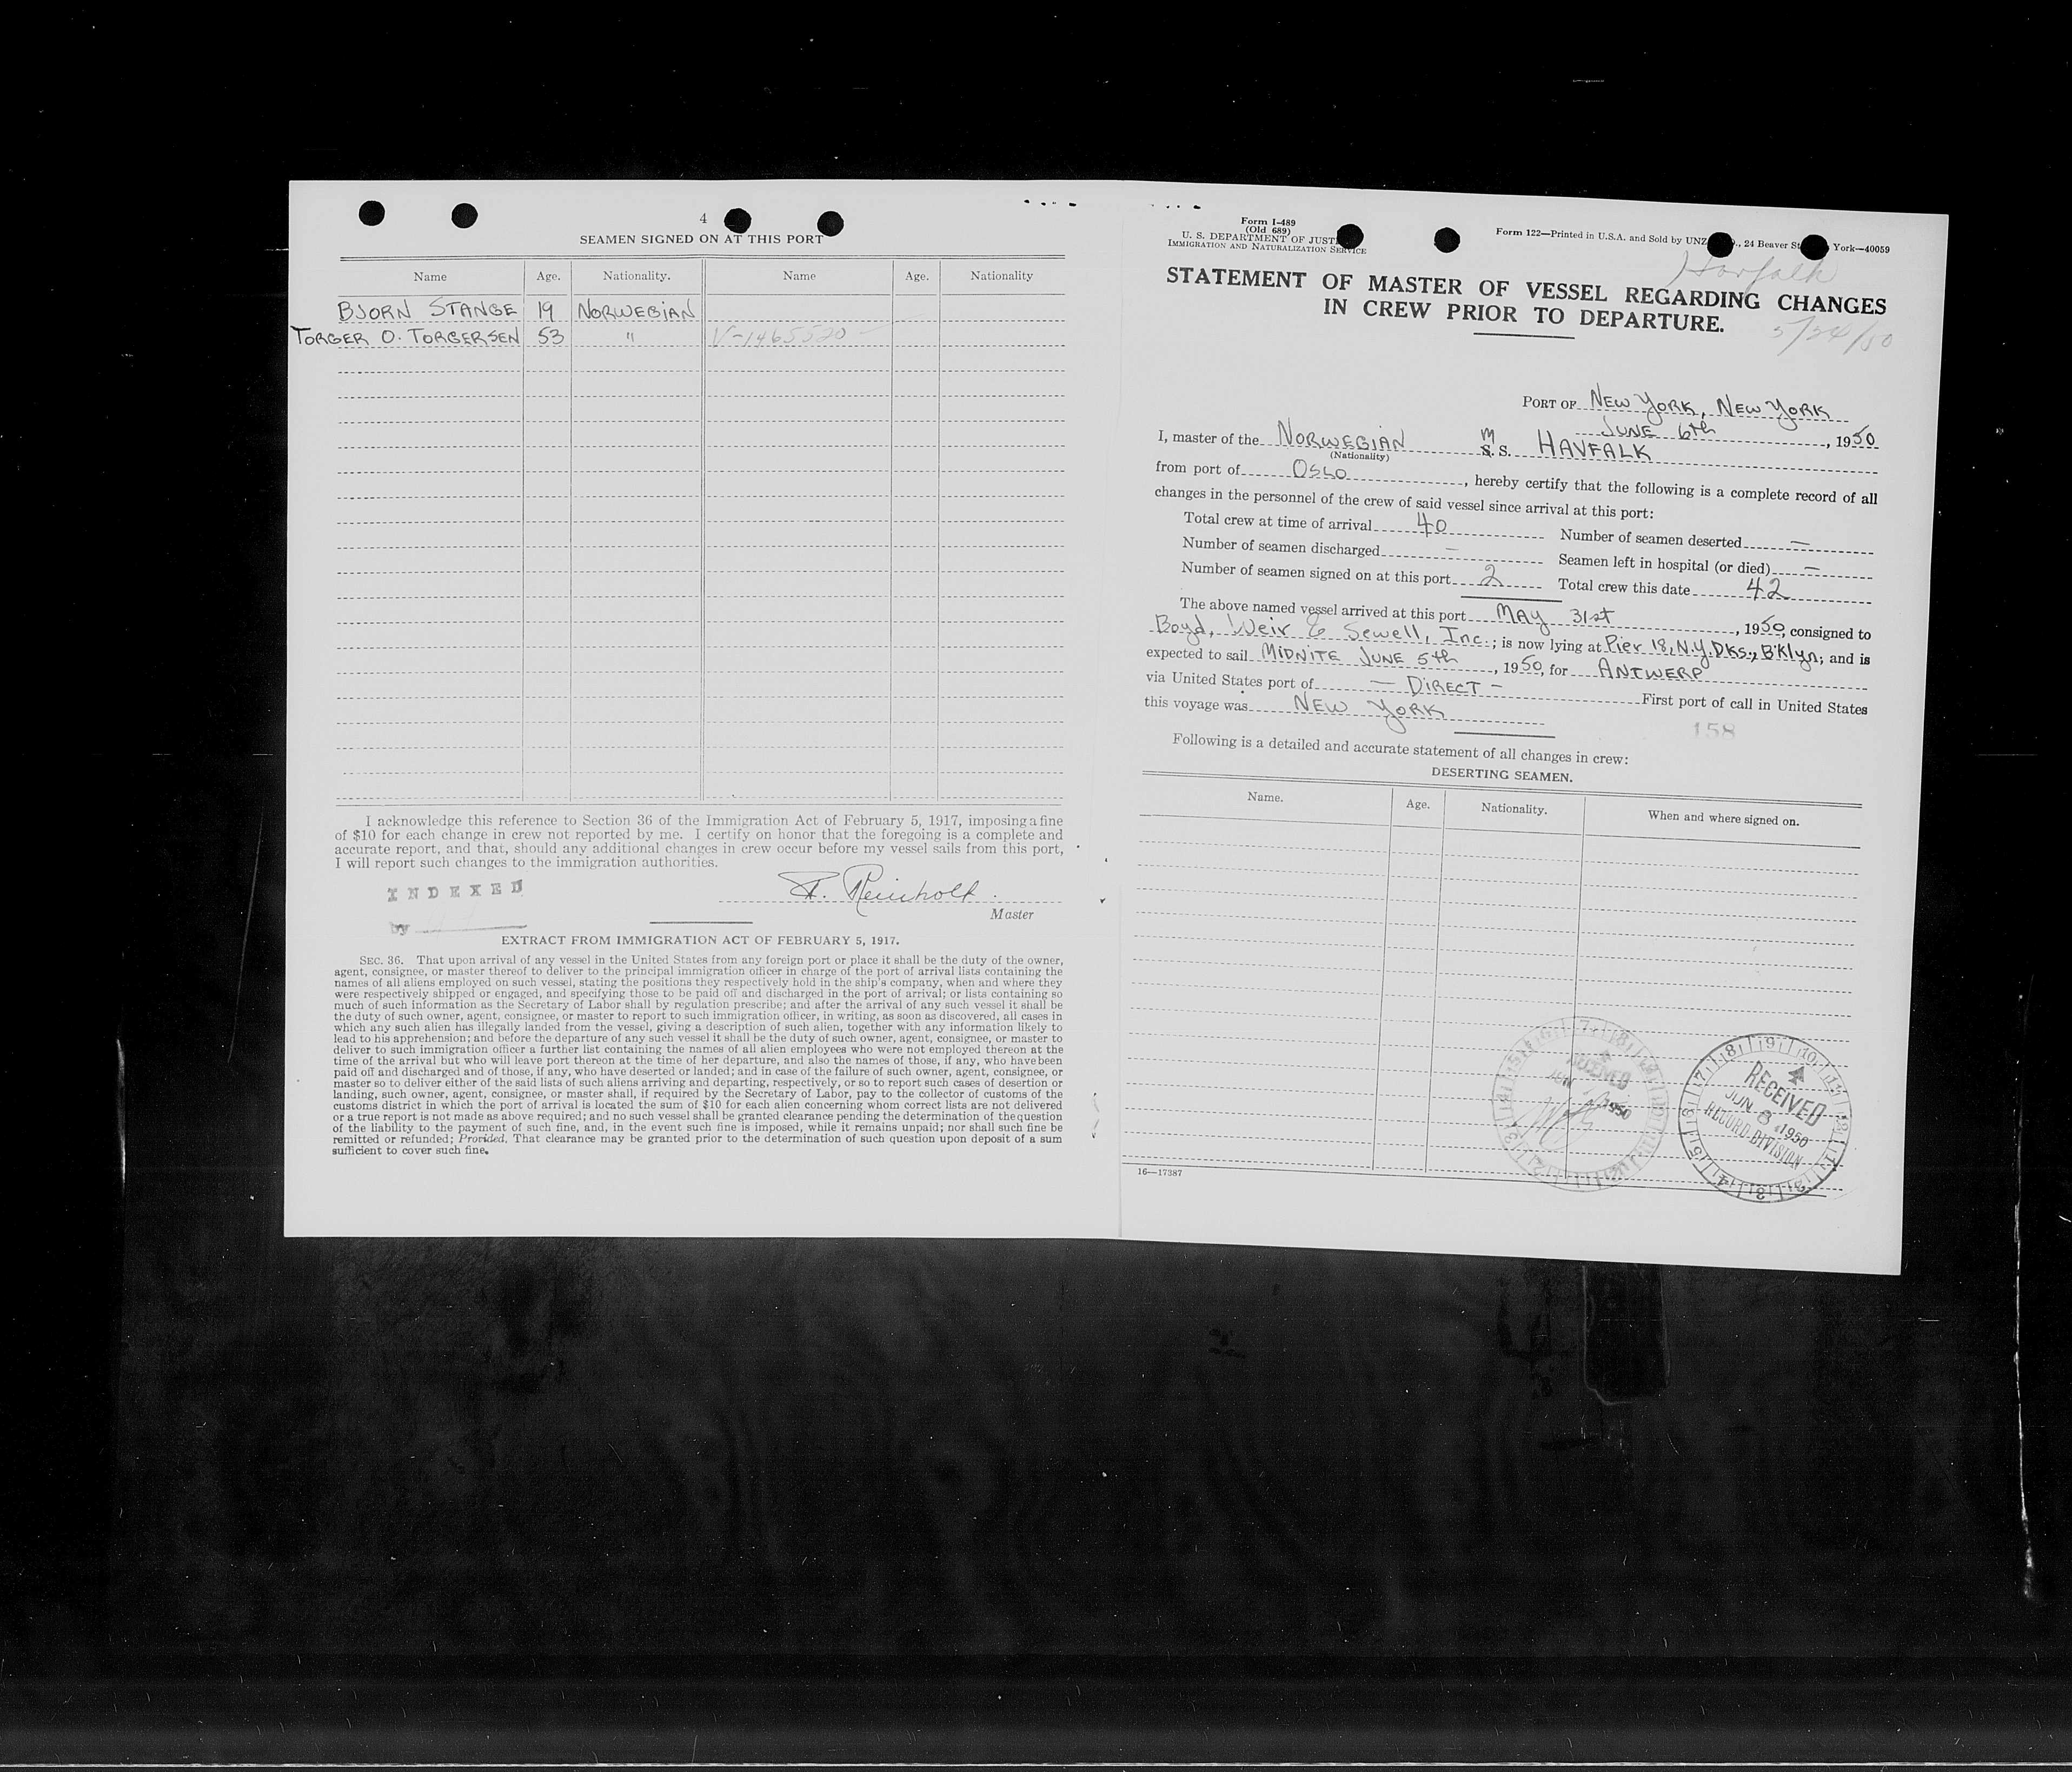 4
SEAMEN SIGNED ON AT THIS PORT
Name Age. Nationality. Name Age. Nationality
BJORN STANGE 19 NORWEGIAN
TORGER O. TORGERSEN 53 " V-1465520
I acknowledge this reference to Section 36 of the Immigration Act of February 5, 1917, imposing a fine
of $10 for each change in crew not reported by me. I certify on honor that the foregoing is a complete and
accurate report, and that, should any additional changes in crew occur before my vessel sails from this port,
I will report such changes to the immigration authorities.
INDEXED
by
Reinholt
Master
EXTRACT FROM IMMIGRATION ACT OF FEBRUARY 5, 1917.
SEC. 36. That upon arrival of any vessel in the United States from any foreign port or place it shall be the duty of the owner,
agent, consignee, or master thereof to deliver to the principal immigration officer in charge of the port of arrival lists containing the
names of all aliens employed on such vessel, stating the positions they respectively hold in the ship's company, when and where they
were respectively shipped or engaged, and specifying those to be paid off and discharged in the port of arrival; or lists containing so
much of such information as the Secretary of Labor shall by regulation prescribe; and after the arrival of any such vessel it shall be
the duty of such owner, agent, consignee, or master to report to such immigration officer, in writing, as soon as discovered, all cases in
which any such alien has illegally landed from the vessel, giving a description of such alien, together with any information likely to
lead to his apprehension; and before the departure of any such vessel it shall be the duty of such owner, agent, consignee, or master to
deliver to such immigration officer a further list containing the names of all alien employees who were not employed thereon at the
time of the arrival but who will leave port thereon at the time of her departure, and also the names of those, if any, who have been
paid off and discharged and of those, if any, who have deserted or landed; and in case of the failure of such owner, agent, consignee, or
master so to deliver either of the said lists of such aliens arriving and departing, respectively, or so to report such cases of desertion or
landing, such owner, agent, consignee, or master shall, if required by the Secretary of Labor, pay to the collector of customs of the
customs district in which the port of arrival is located the sum of $10 for each alien concerning whom correct lists are not delivered
or a true report is not made as above required; and no such vessel shall be granted clearance pending the determination of the question
of the liability to the payment of such fine, and, in the event such fine is imposed, while it remains unpaid; nor shall such fine be
remitted or refunded; Provided, That clearance may be granted prior to the determination of such question upon deposit of a sum
sufficient to cover such fine.
Form I-489
(Old 689)
U. S. DEPARTMENT OF JUST
IMMIGRATION AND NATURALIZATION SERVICE
Form 122—Printed in U.S.A. and Sold by UNZ ., 24 Beaver St York—40059
STATEMENT OF MASTER OF VESSEL REGARDING CHANGES
IN CREW PRIOR TO DEPARTURE.
PORT OF NEW YORK, NEW YORK
JUNE 6th, 1950
I, master of the NORWEGIAN M S. S. HAVFALK
(Nationality)
from port of OSLO, hereby certify that the following is a complete record of all
changes in the personnel of the crew of said vessel since arrival at this port:
Total crew at time of arrival 40 Number of seamen deserted —
Number of seamen discharged — Seamen left in hospital (or died) —
Number of seamen signed on at this port 2 Total crew this date 42
The above named vessel arrived at this port MAY 31st, 1950, consigned to
Boyd, Weir & Sewell, Inc.; is now lying at Pier 18, N.Y. Dks., B'klyn; and is
expected to sail MIDNITE JUNE 5th, 1950, for ANTWERP
via United States port of — DIRECT — First port of call in United States
this voyage was NEW YORK
158
Following is a detailed and accurate statement of all changes in crew:
DESERTING SEAMEN.
Name. Age. Nationality. When and where signed on.
1950
RECEIVED
JUN 8 1950
RECORD DIVISION
16—17387